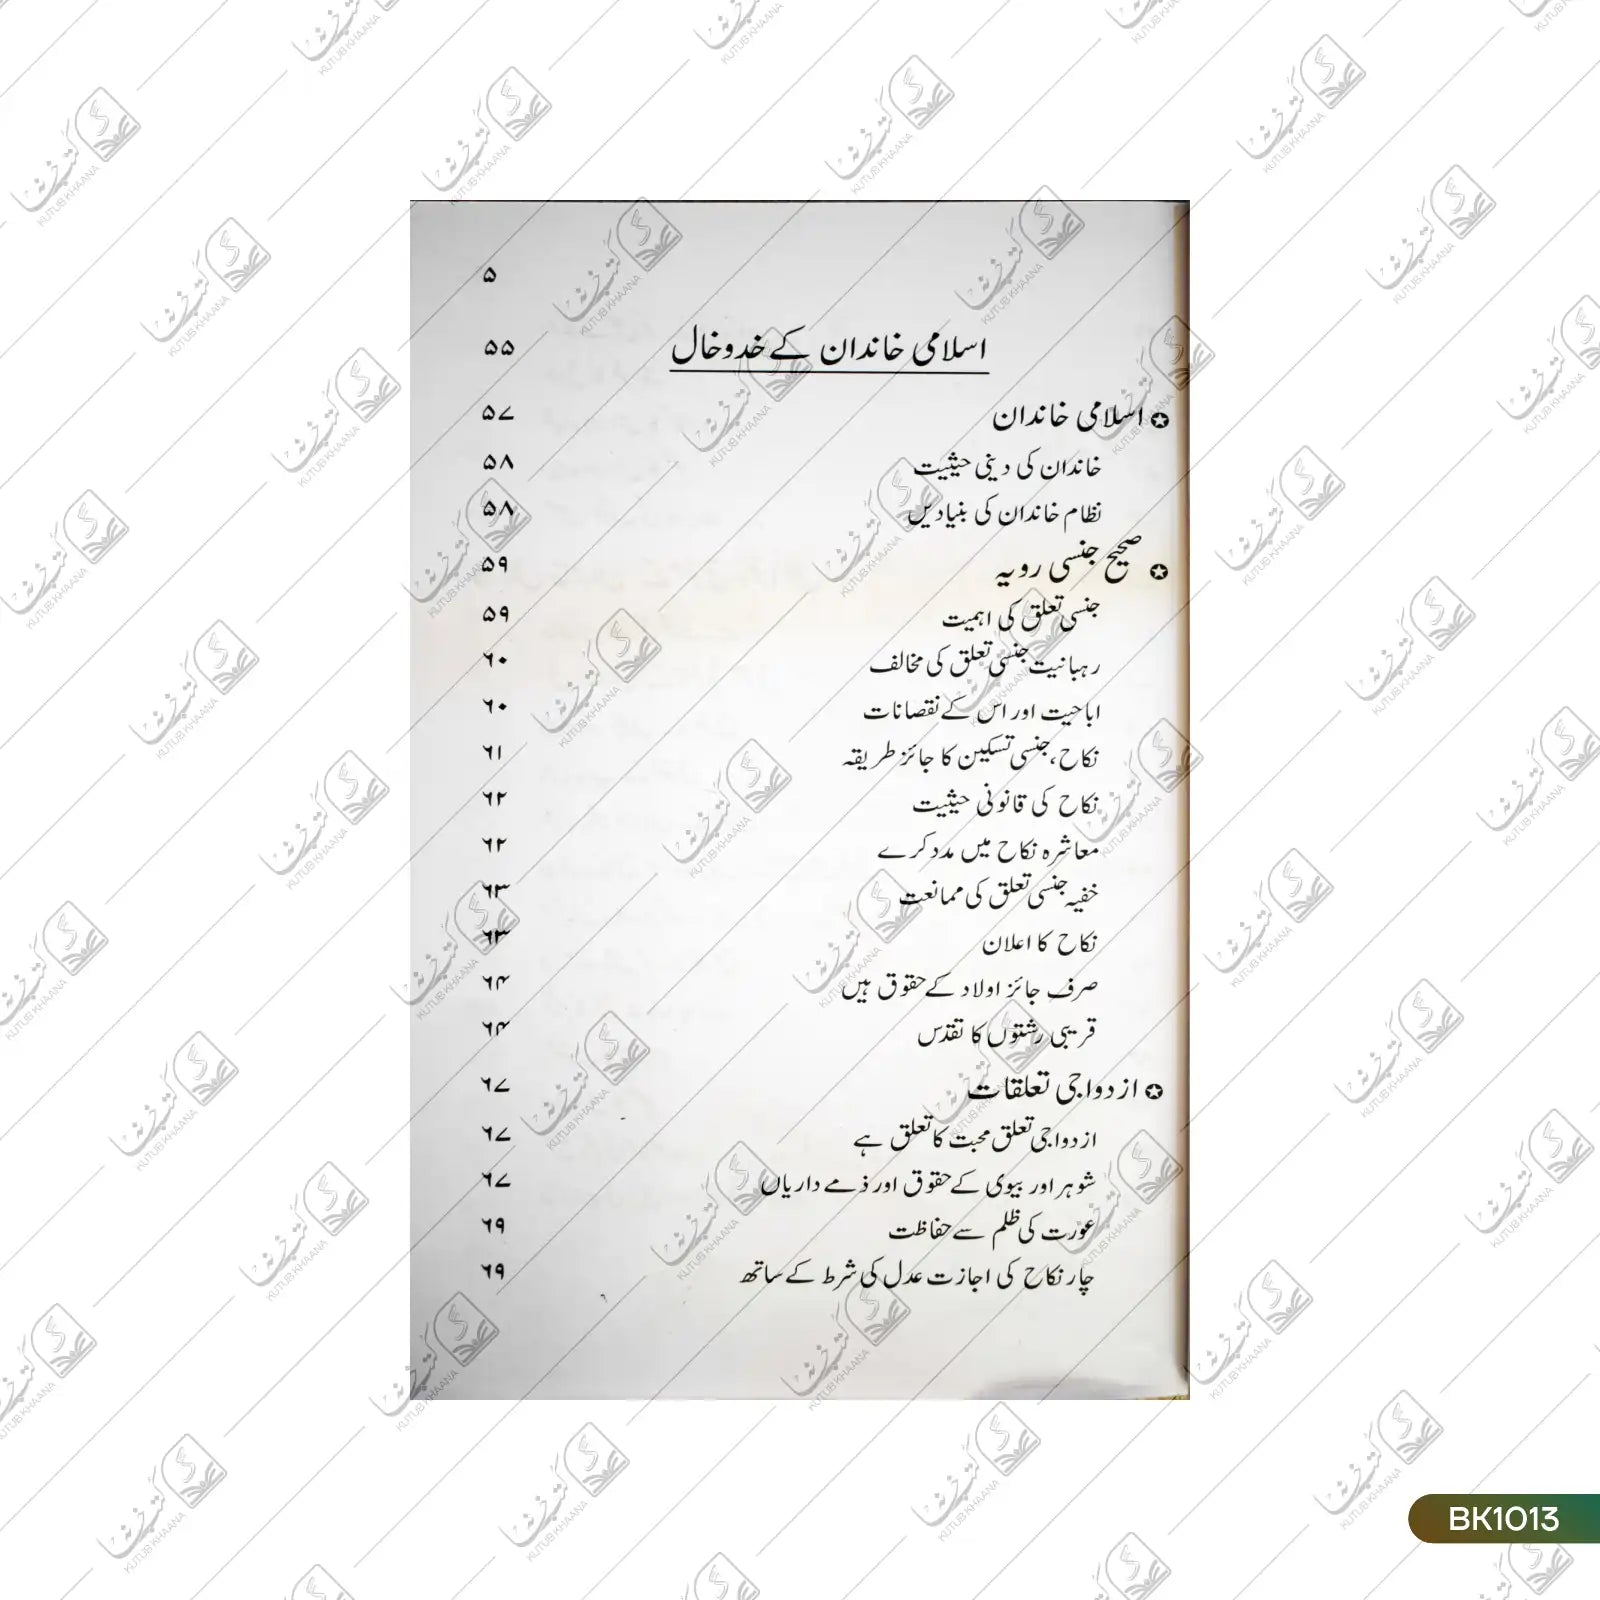 ۵
اسلامی خاندان کے خدوخال ۵۵
✪ اسلامی خاندان ۵۷
خاندان کی دینی حیثیت ۵۸
نظام خاندان کی بنیادیں ۵۸
✪ صحیح جنسی رویہ ۵۹
جنسی تعلق کی اہمیت ۵۹
رہبانیت جنسی تعلق کی مخالف ۶۰
اباحیت اور اس کے نقصانات ۶۰
نکاح، جنسی تسکین کا جائز طریقہ ۶۱
نکاح کی قانونی حیثیت ۶۲
معاشرہ نکاح میں مدد کرے ۶۲
خفیہ جنسی تعلق کی ممانعت ۶۳
نکاح کا اعلان ۶۳
صرف جائز اولاد کے حقوق ہیں ۶۴
قریبی رشتوں کا تقدس ۶۴
✪ ازدواجی تعلقات ۶۷
ازدواجی تعلق محبت کا تعلق ہے ۶۷
شوہر اور بیوی کے حقوق اور ذمے داریاں ۶۷
عورت کی ظلم سے حفاظت ۶۹
چار نکاح کی اجازت عدل کی شرط کے ساتھ ۶۹
BK1013
کتب خانہ
KUTUB KHAANA